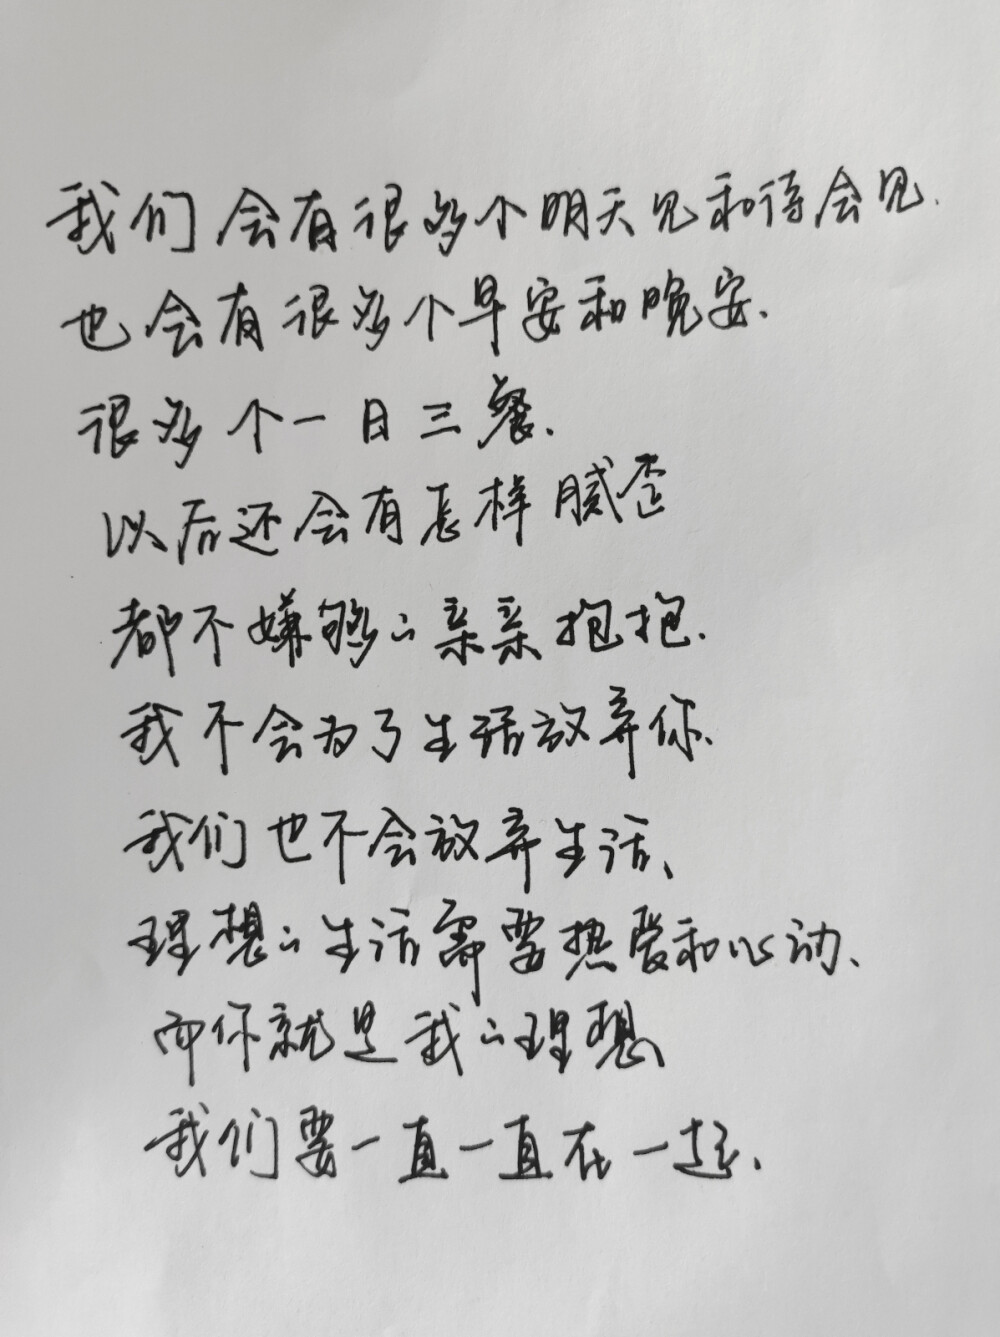 我们会有很多个明天见和待会见.
也会有很多个早安和晚安.
很多个一日三餐.
以后还会有怎样腻歪
都不嫌够的亲亲抱抱.
我不会为了生活放弃你.
我们也不会放弃生活、
理想的生活需要热爱和心动、
而你就是我的理想
我们要一直一直在一起.